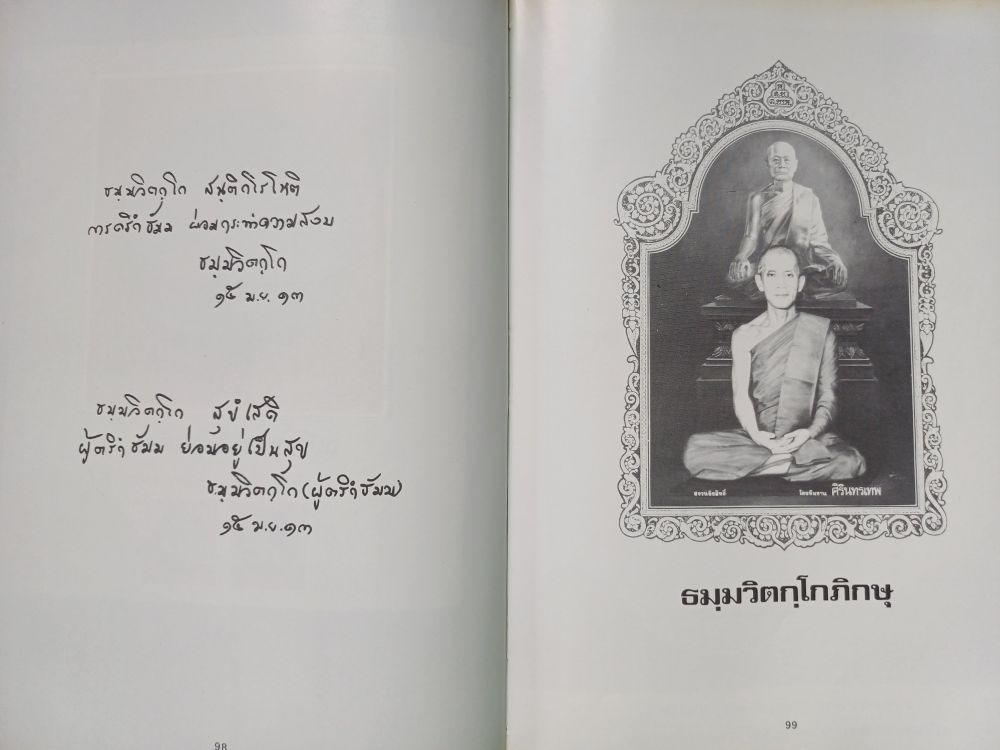 ธมฺมวิตกฺโก สนฺติกโรโหติ
การตริกธัมม ย่อมกระทำความสงบ
ธมฺมวิตกฺโก
๑๕ ม.ย. ๑๓
ธมฺมวิตกฺโก สุขํเสติ
ผู้ตริกธัมม ย่อมอยู่เป็นสุข
ธมฺมวิตกฺโก (ผู้ตริกธัมม)
๑๕ ม.ย. ๑๓
98
สงวนลิขสิทธิ์ โดยทีมงาน ศิรินทรเทพ
ธมฺมวิตกฺโกภิกขุ
99